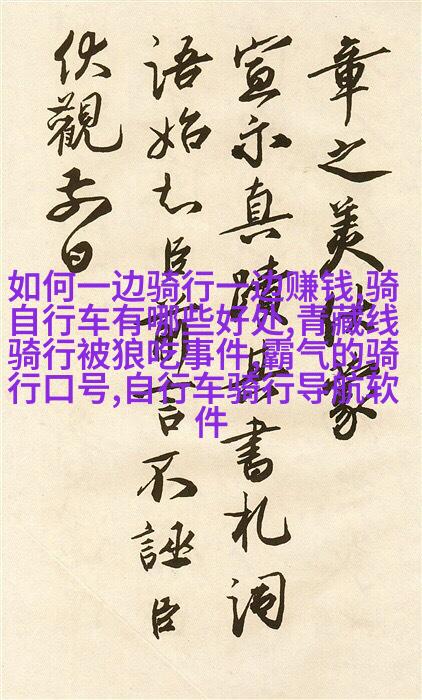 章之美蒙
宣示真蹟書札詞
語始知臣言不誣臣
伏觀前日
如何一边骑行一边赚钱,骑
自行车有哪些好处,青藏线
骑行被狼吃事件,霸气的骑
行口号,自行车骑行导航软
件